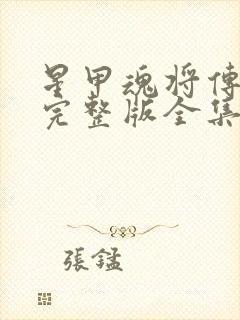 星甲魂将傳
完整版全集
張錳